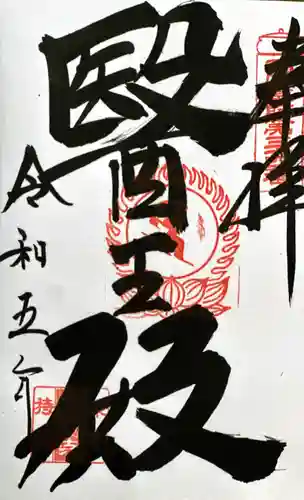 奉拝
醫王殿
令和五年